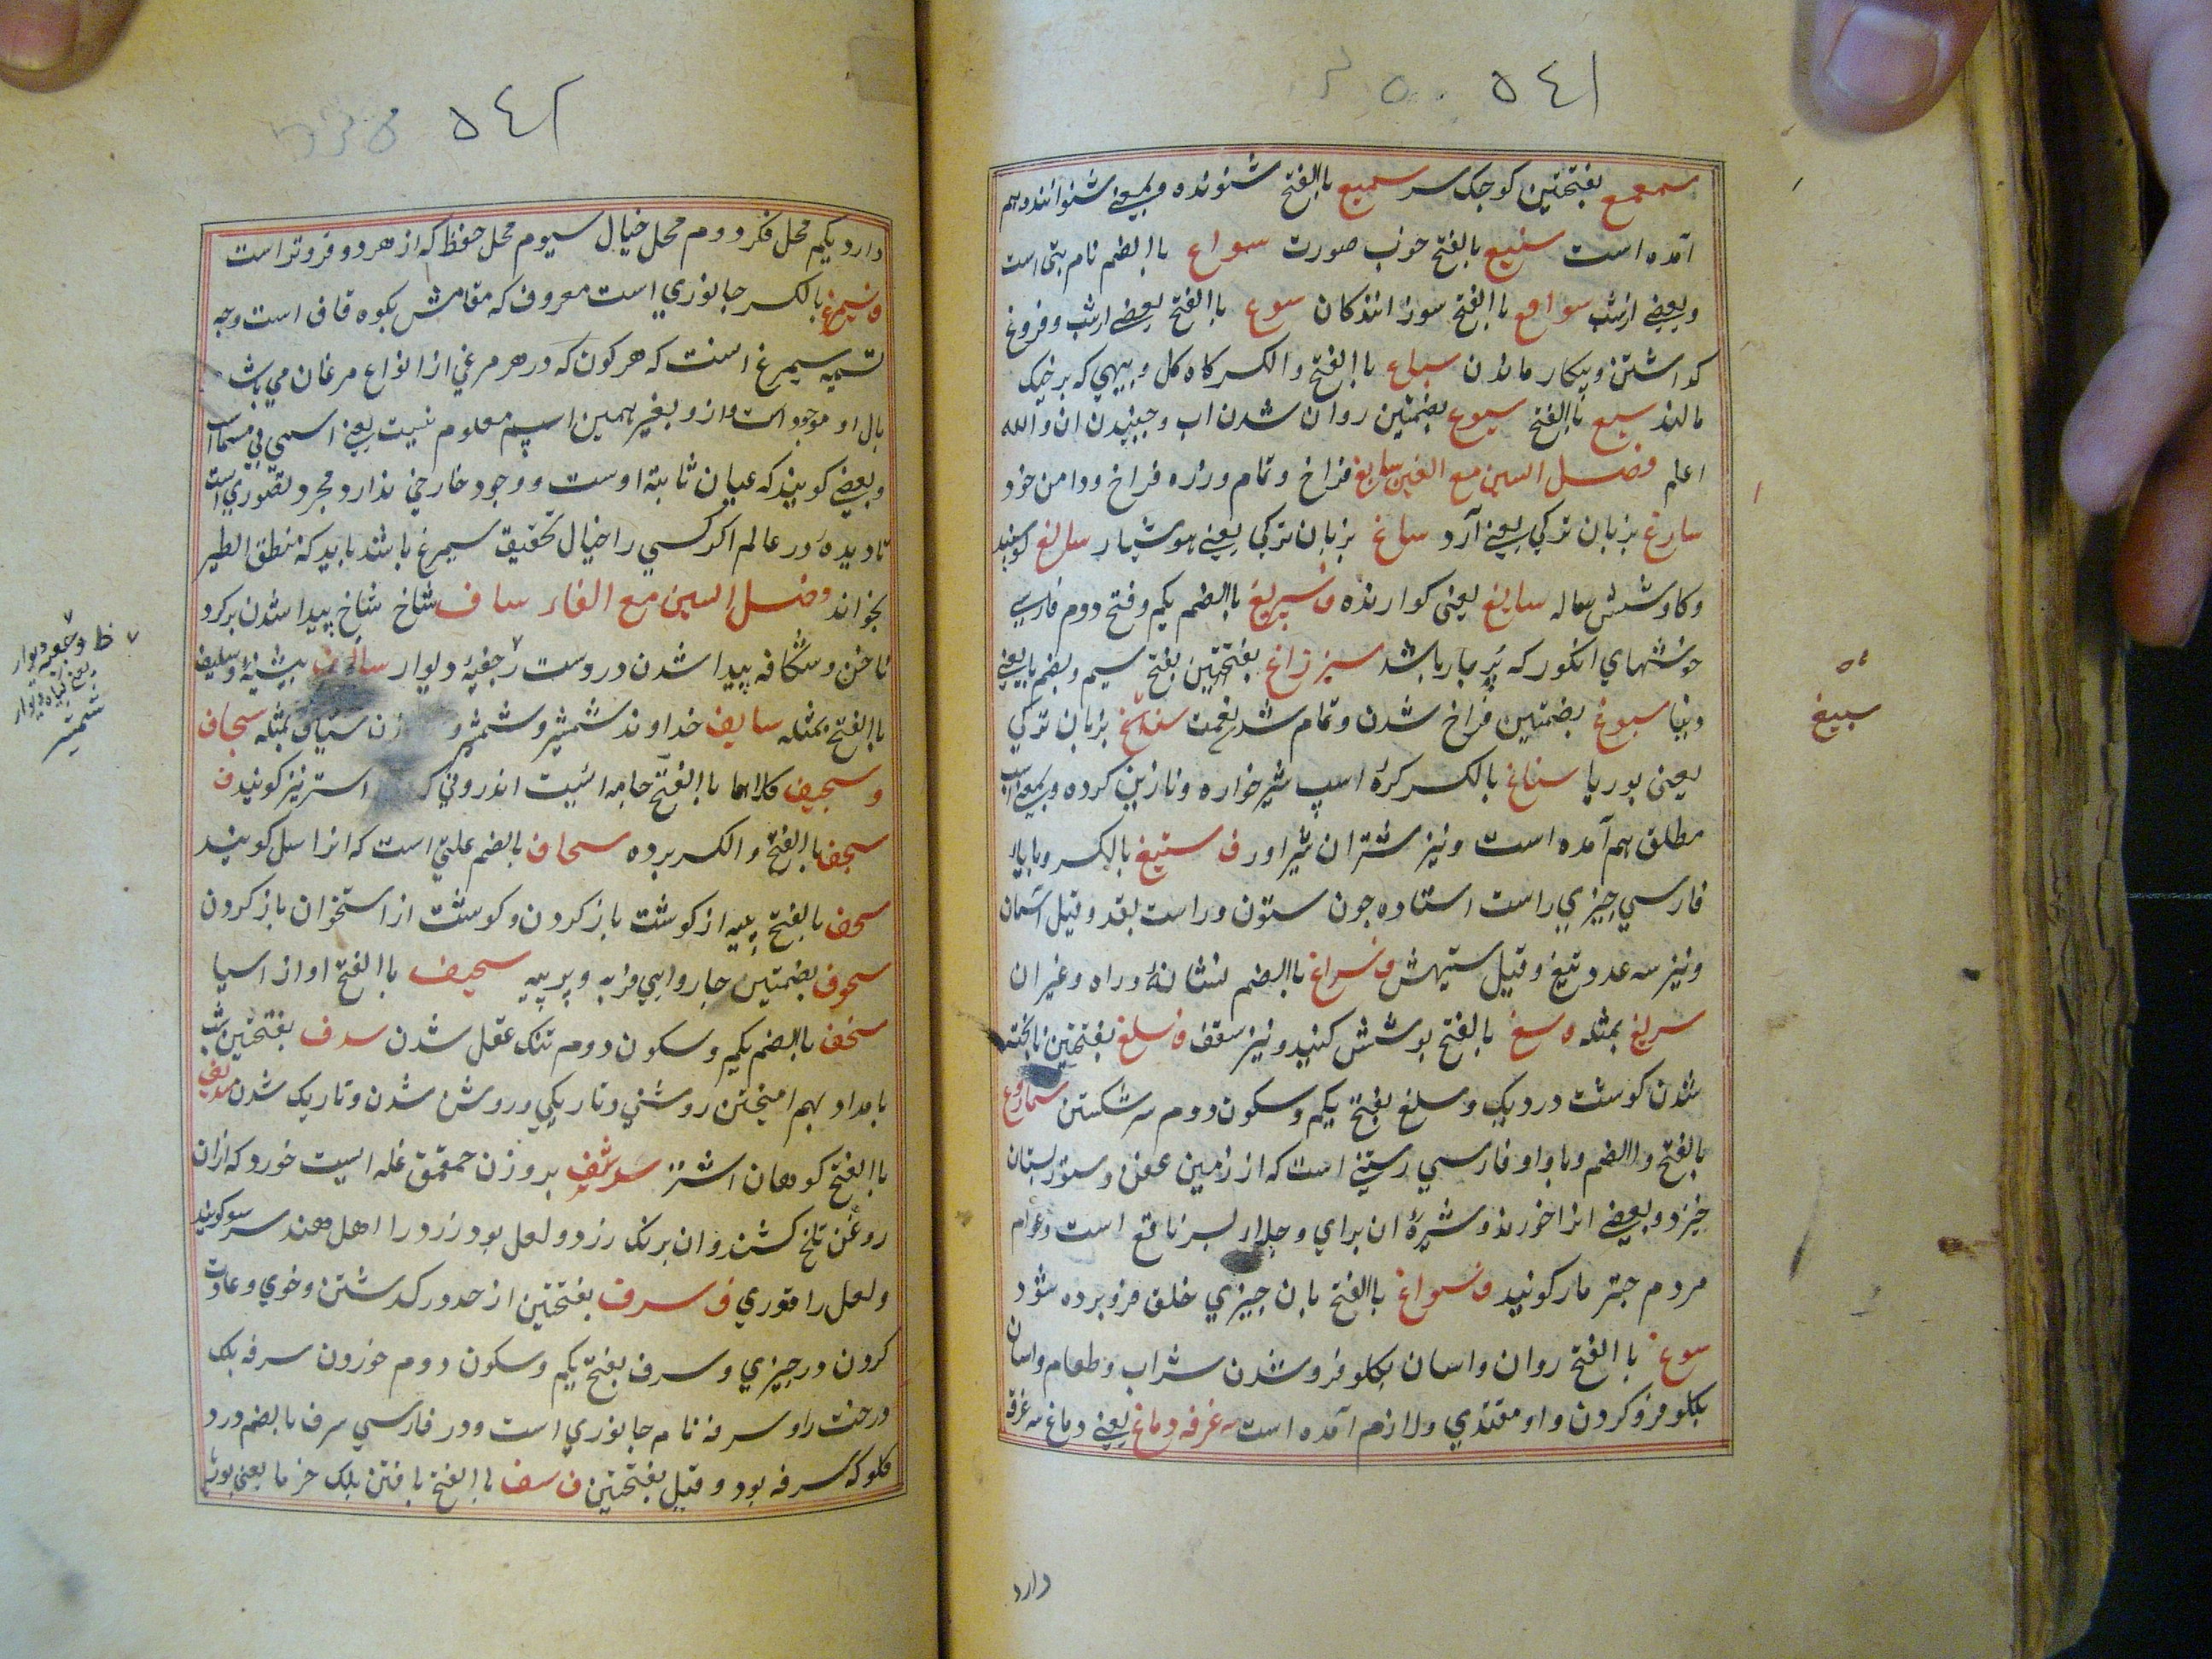 ٥٤١
سمعمع بفتحتین کوچک سر سمیع باالفتح شنونده وبمعنے شنوانندہ ہم
آمده است سنیع بالفتح خوب صورت سواع باالضم نام بتی است
وبعضے ازشب سواقع باالفتح سوزانندکان سوع باالفتح بعضے ازشب وفروغ
کداشتن وبیکار ماندن سیاع باالفتح والکسر کاه کل وپیهي که برخیک
مالند سیع باالفتح سیوع بضمتین روان شدن اب وجنبیدن ان والله
اعلم فصل السین مع الغین سابغ فراخ وتمام وزره فراخ ودامن خود
سارغ بزبان ترکي یعنے آرد ساغ بزبان ترکي یعنے هوشیار سالغ کویند
وکاوشش ساله سایغ یعنی کوارنده ف سپریغ باالضم یکم وفتح دوم فارسي
خوشهاي انکور که پر بار باشد سبزاغ بفتحتین بفتح سیم وبضم با یعنے
وبنا سبوغ بضمتین فراخ شدن وتمام شدن نعمت بزبان ترکي
یعنی بوریا ستاغ بالکسر کرۀ اسپ شیرخواره ونازین کرده وبمعنے اسب
مطلق هم آمده است ونیز شتران شیراور ف ستیغ بالکسر وبایاء
فارسي چیزي راست استاده چون ستون وراست بقد وقیل آسمان
ونیز سه عدد تیغ وقیل ستیهش ف سراغ باالضم نشانۀ وراه وغیر ان
سریغ بمثله ه سغ بالفتح پوشش کنبد ونیز سقف ف سلغ بفتحتین ناپخته
شدن کوشت در دیک وسلغ بفتح یکم وسکون دوم سر شکستن سماروغ
بالفتح والضم وباواو فارسي رستنے است که از زمین عفن وستورستان
خیزد وبعضے انرا خورند وشیرۀ ان براي وجلار بسر نافع است وعوام
مردم چتر مار کویند ف سواغ باالفتح بان چیزي خلق فرو برده شود
سوغ باالفتح روان واسان بکلو فرو شدن شراب وطعام واسان
بکلو فرو کردن واو متعدي ولازم آمده است سه غرفه دماغ یعنے دماغ سه غرفه
دارد
سبیغ
٥٤٢
دارد یکم محل فکر دوم محل خیال سیوم محل حفظ که از هردو فروتر است
ف سیمرغ بالکسر جانوري است معروف که مقامش بکوه قاف است وجه
تسمیه سیمرغ انست که هر کون که در هر مرغي از انواع مرغان مي باشد
بال او موجود است وازو بغیر همین اسم معلوم نیست یعنے اسمي بي مسما است
وبعضے کویند که عیان ثابتة اوست ووجود خارجي ندارد مجرد تصوري است
نادیدۀ در عالم اکر کسي را خیال تحقیق سیمرغ باشد باید که منطق الطیر
بخواند فصل السین مع الفاء ساف شاخ شاخ پیدا شدن برکرد
ناخن وشکافه پیدا شدن در دست وجغبۀ دیوار سالف پیشینۀ وسلیف
باالفتح بمثله سایف خداوند شمشیر وشمشیر و زن سیاف بمثله سجاف
وسجیف کلاهما باالفتح جامه اییت اندروني که استر نیز کویند ف
سجف باالفتح والکسر پرده سحاف بالضم علتي است که انرا سل کویند
سحف بالفتح پیه از کوشت باز کردن وکوشت از استخوان باز کردن
سحوف بضمتین چارواىي فربه وپرپیه سحیف باالفتح اواز اسیا
سخف باالضم یکم وسکون دوم تنک عقل شدن سدف بفتحتین شب
بامداد بهم امیختن روشني وتاریکي وروشن شدن وتاریک شدن سدیف
باالفتح کوهان اشتر سرشف بروزن حمقمق غله ایست خورد که ازان
روغن تلخ کشند وان برنک زرد ولعل بود زرد را اهل هند سرسو کویند
ولعل را توري ف سرف بفتحتین از حد در کدشتن وخوي وعادت
کردن در چیزي وسرف بفتح یکم وسکون دوم خوردن سرفه بلک
درخت را وسرفه نام جانوري است ودر فارسي سرف بالضم درد
کلو که سرفه بود وقیل بفتحتین ف سف باالفتح بافتن بلک خرما یعنی بوریا